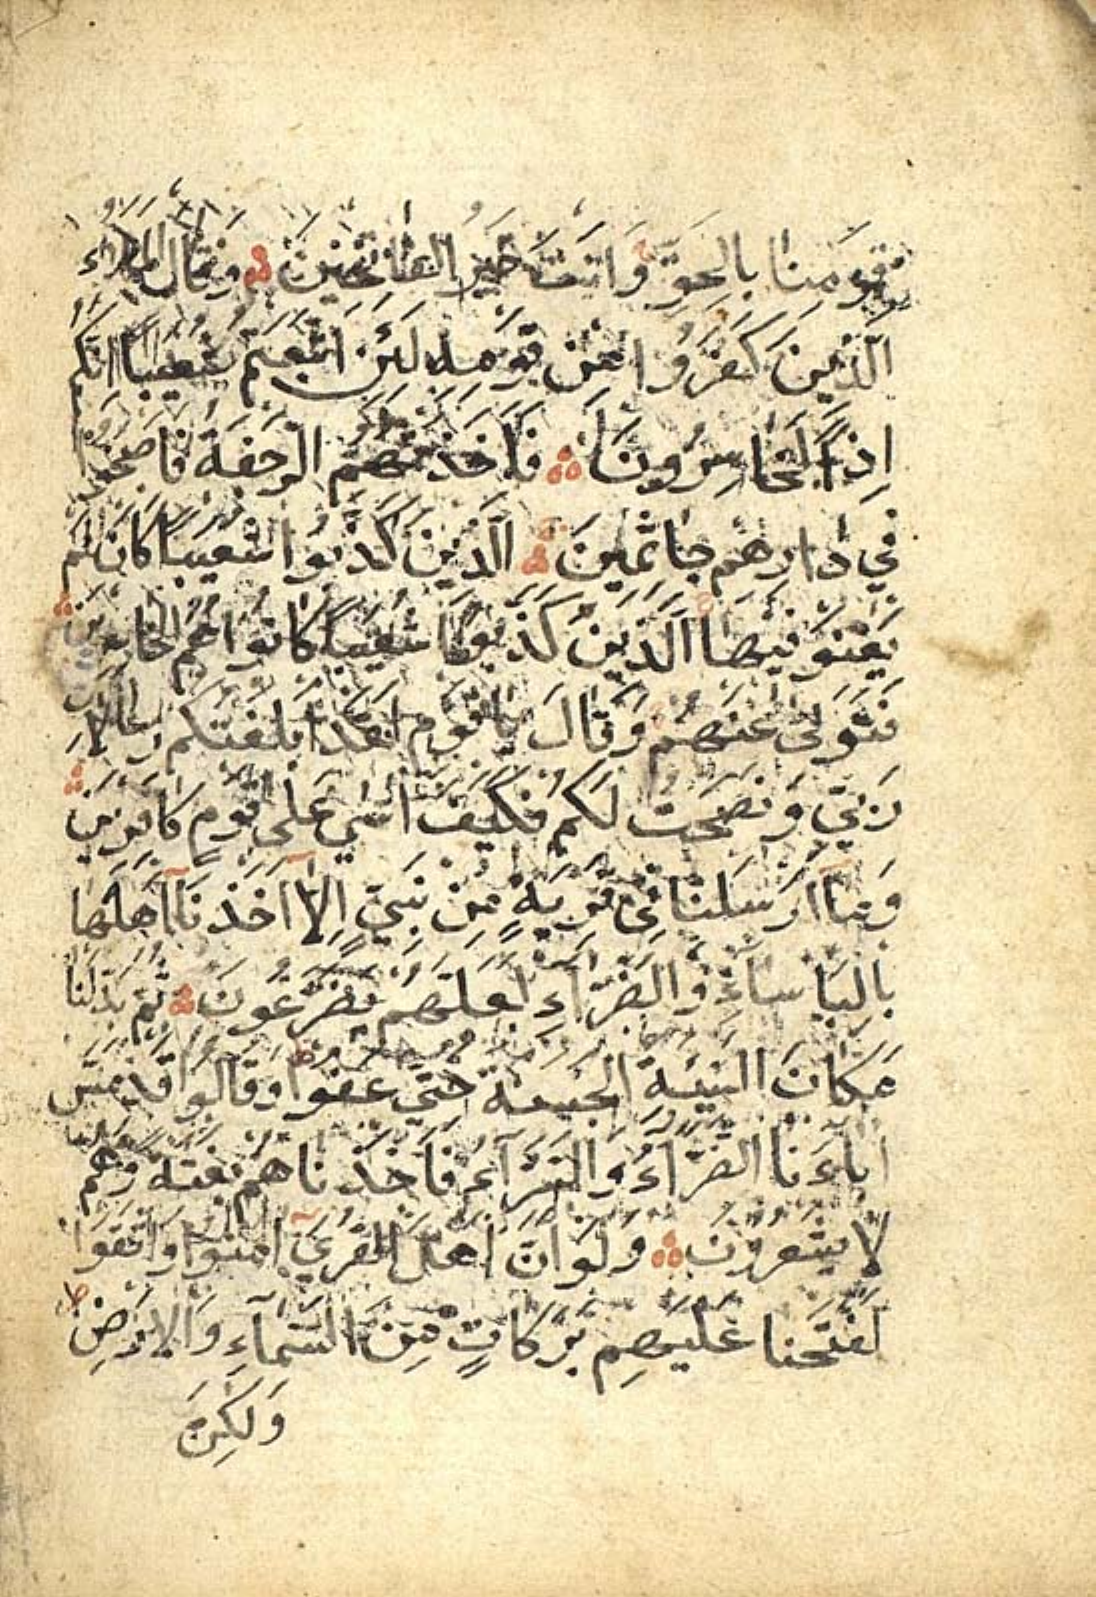 قَومِنا بِالحَقِّ وَاَنتَ خَيرُ الفاتِحينَ وَقالَ المَلَاُء
الَّذينَ كَفَرُوا مِن قَومِهِ لَئِنِ اتَّبَعتُم شُعَيبًا اِنَّكُم
اِذًا لَخاسِرُونَ فَاَخَذَتهُمُ الرَّجفَةُ فَاَصبَحُوا
في دارِهِم جاثِمينَ الَّذينَ كَذَّبُوا شُعَيبًا كَاَن لَم
يَغنَوا فيها اَلَّذينَ كَذَّبُوا شُعَيبًا كانُوا هُمُ الخاسِرينَ
فَتَوَلّى عَنهُم وَقالَ يا قَومِ لَقَد اَبلَغتُكُم رِسالاتِ
رَبّي وَنَصَحتُ لَكُم فَكَيفَ آسي عَلى قَومٍ كافِرينَ
وَمآ اَرسَلنا في قَريَةٍ مِن نَبِيٍّ اِلّا اَخَذنآ اَهلَها
بِالبَأساءِ وَالضَّرّآءِ لَعَلَّهُم يَضَّرَّعُونَ ثُمَّ بَدَّلنا
مَكانَ السَّيِّئَةِ الحَسَنَةَ حَتّى عَفَوا وَقالُوا قَد مَسَّ
ابآءَنا الضَّرّآءُ وَالسَّرّآءُ فَاَخَذناهُم بَغتَةً وَهُم
لا يَشعُرُونَ وَلَو اَنَّ اَهلَ القُرى امَنُوا وَاتَّقَوا
لَفَتَحنا عَلَيهِم بَرَكاتٍ مِنَ السَّمآءِ وَالاَرضِ
وَلكِن